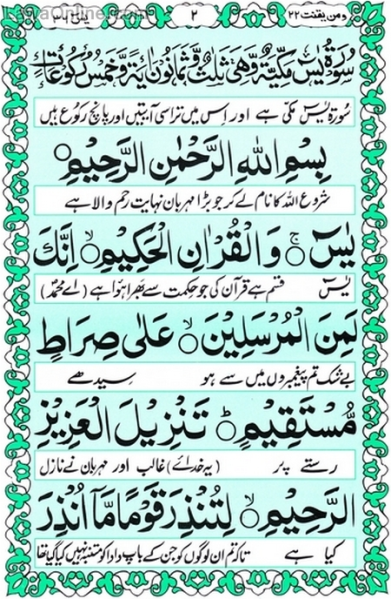 ومن یقنت ۲۲
۲
یٰسٓ ۳۶
سُوْرَةُ يٰسٓ مَكِّيَّةٌ وَّهِيَ ثَلٰثٌ وَّثَمَانُوْنَ اٰيَةً وَّخَمْسُ رُكُوْعَاتٍ
سُورۂ یٰسٓ مکّی ہے اور اِس میں تراسی آیتیں اور پانچ رکوع ہیں
بِسْمِ اللهِ الرَّحْمٰنِ الرَّحِيْمِ
شروع اللہ کا نام لے کر جو بڑا مہربان نہایت رحم والا ہے
يٰسٓ ۚ وَالْقُرْاٰنِ الْحَكِيْمِ ۙ اِنَّكَ
یٰسٓ قسم ہے قرآن کی جو حکمت سے بھرا ہوا ہے (اے محمدؐ)
لَمِنَ الْمُرْسَلِيْنَ ۙ عَلٰى صِرَاطٍ
بے شک تم پیغمبروں میں سے ہو سیدھے
مُّسْتَقِيْمٍ ؕ تَنْزِيْلَ الْعَزِيْزِ
رستے پر (یہ خدائے) غالب اور مہربان نے نازل
الرَّحِيْمِ ۙ لِتُنْذِرَ قَوْمًا مَّاۤ اُنْذِرَ
کیا ہے تاکہ تم ان لوگوں کو جن کے باپ دادا کو متنبہ نہیں کیا گیا تھا